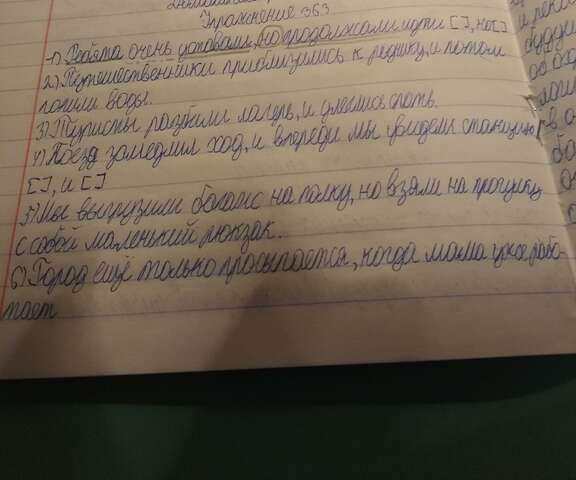 Упражнение 363
1) Ребята очень устали, но продолжали идти [ ], но [ ]
2) Путешественники приблизились к роднику, и потом
попили воды.
3) Туристы разбили лагерь, и улеглись спать.
4) Поезд замедлил ход, и впереди мы увидели станцию
[ ], и [ ]
5) Мы выгрузили багаж на полку, но взяли на прогулку
с собой маленький рюкзак.
6) Город ещё только просыпается, когда мама уже рабо-
тает